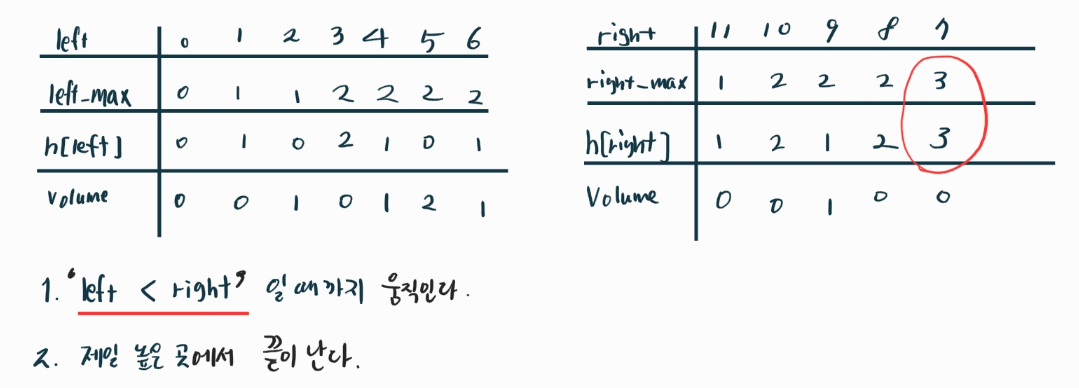 left 0 1 2 3 4 5 6
left_max 0 1 1 2 2 2 2
h[left] 0 1 0 2 1 0 1
Volume 0 0 1 0 1 2 1
right 11 10 9 8 7
right_max 1 2 2 2 3
h[right] 1 2 1 2 3
Volume 0 0 1 0 0
1. 'left < right' 일때까지 움직인다.
2. 제일 높은 곳에서 끝이 난다.